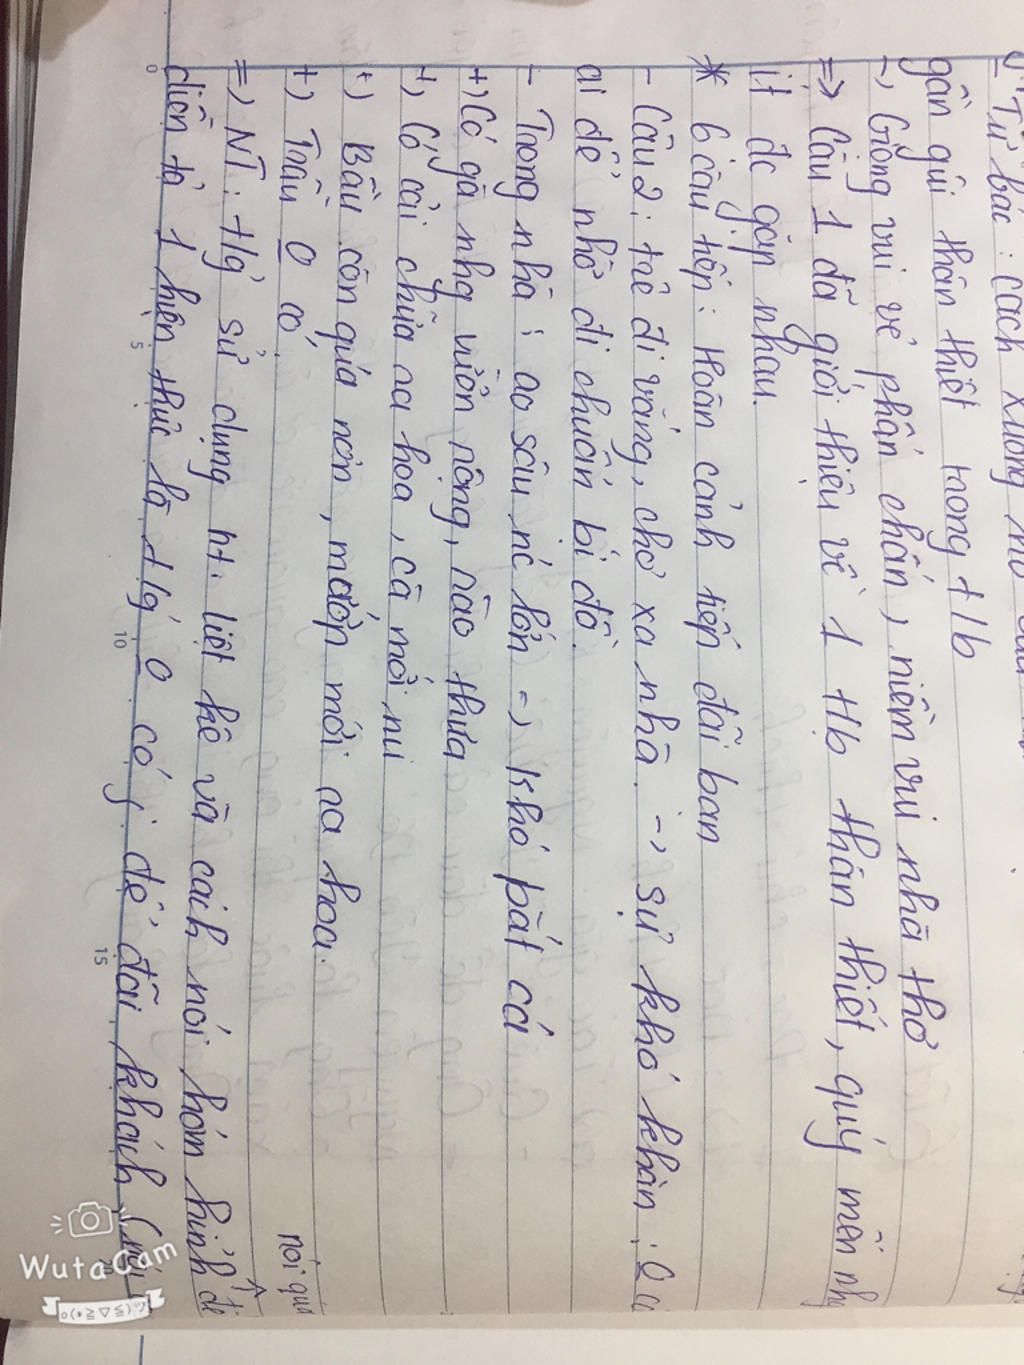 - Từ bác : cách xưng hô
gần gũi thân thiết trong t/b
-> Giọng vui vẻ phấn chấn, niềm vui nhà thơ
=> Câu 1 đã giới thiệu về 1 t/b thân thiết, quý mến nhg
ít đc gặp nhau.
* 6 câu tiếp : Hoàn cảnh tiếp đãi bạn
- Câu 2 : trẻ đi vắng, chợ xa nhà -> sự khó khăn : 0 có
ai để nhờ đi chuẩn bị đồ.
- Trong nhà : ao sâu, nc lớn => khó bắt cá
+) Có gà nhg vườn rộng, rào thưa
+) Cải chửa ra hoa, cà mới nụ
+) Bầu còn quá non, mướp mới ra hoa.
+) Trầu 0 có
nói quá
=> NT : t/g sử dụng ht liệt kê và cách nói hóm hỉnh để
diễn tả 1 hiện thực là t/g 0 có j để đãi khách
0 5 10 15 20
WutaCam